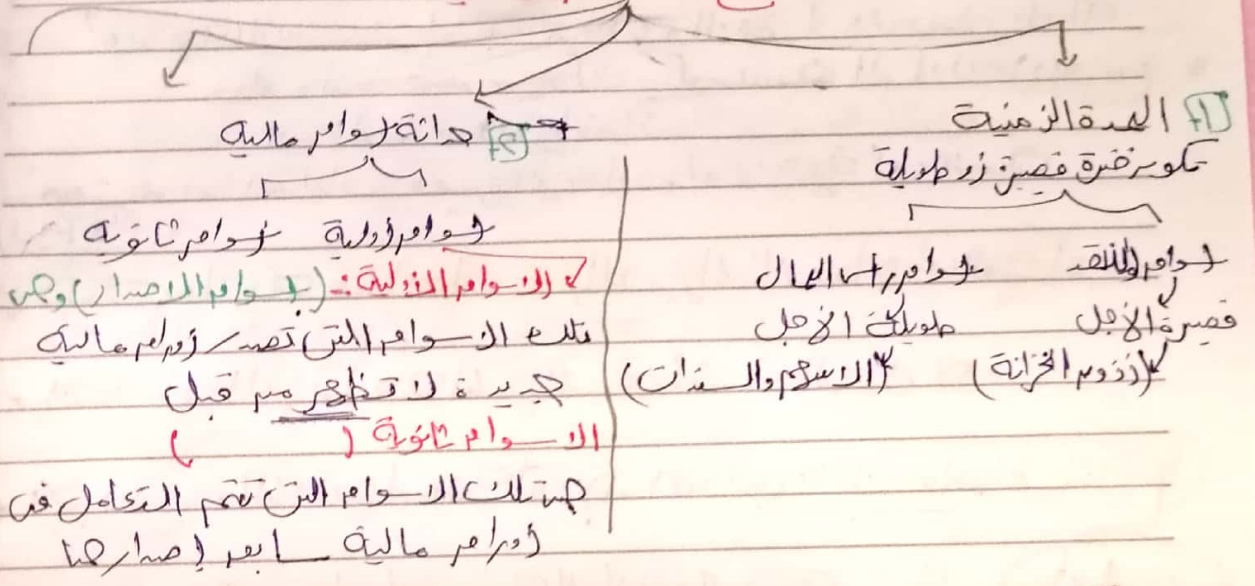 1 المدة الزمنية
تكون فترة قصيرة أو طويلة
اسواق النقد
اسواق رأس المال
قصيرة الأجل
طويلة الأجل
(أذون الخزانة)
(الاسهم والسندات)
2 حداثة اسواق مالية
اسواق أولية
اسواق ثانوية
الاسواق الأولية :- (اسواق الاصدار) وهي
تلك الاسواق التي تصدر أوراق مالية
جديدة لا تظهر من قبل
الاسواق ثانوية ( )
هي تلك الاسواق التي تتم التعامل في
أوراق مالية سابق إصدارها